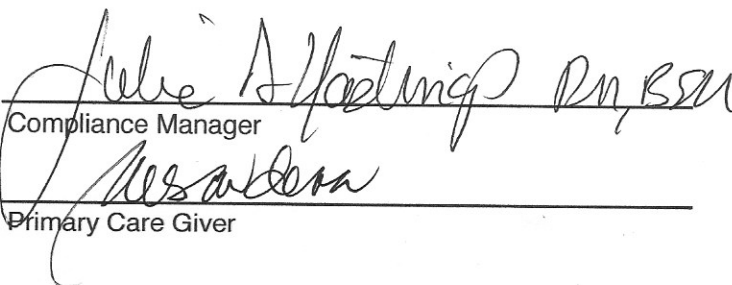 Julie A Hastings RN, BSN
Compliance Manager
Primary Care Giver